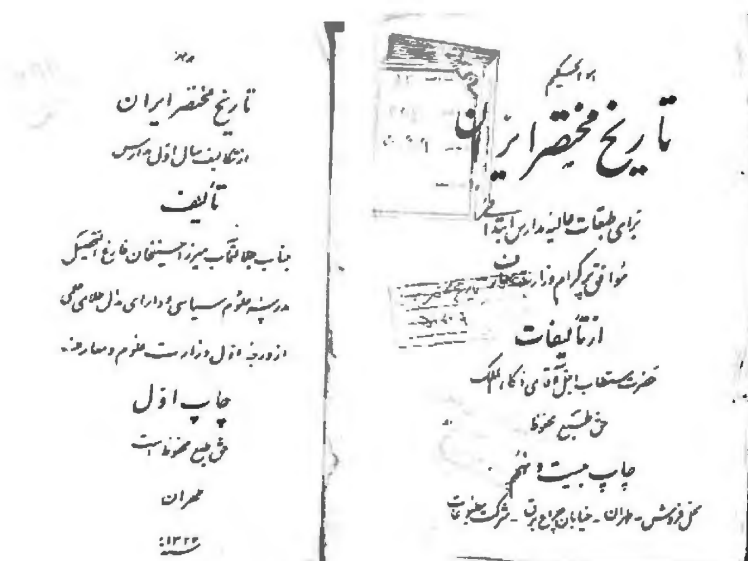 هوالحکیم
تاریخ مختصر ایران
برای طبقات عالیه مدارس ابتدا
موافق پرگرام وزارت
از تألیفات
حضرت مستطاب اجل آقای ذکاءالملک
حق طبع محفوظ
چاپ بیست و نهم
محل فروش - طهران - خیابان چراغ برق - شرکت مطبوعات
هو
تاریخ مختصر ایران
از تکالیف سال اول مدارس
تألیف
جناب جلالتمآب میرزا حسینخان فارغ التحصیل
مدرسه علوم سیاسی و دارای مدال طلای علمی
از درجه اول وزارت علوم و معارف
چاپ اول
حق طبع محفوظ است
طهران